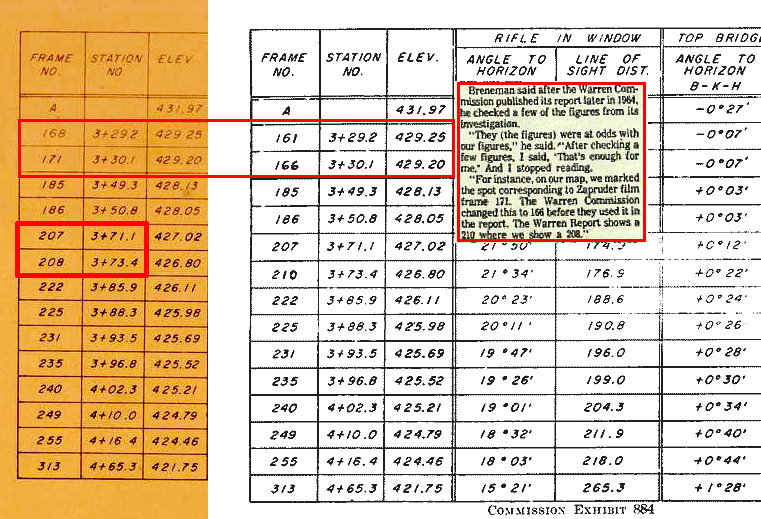 FRAME NO. STATION NO ELEV.
A 431.97
168 3+29.2 429.25
171 3+30.1 429.20
185 3+49.3 428.13
186 3+50.8 428.05
207 3+71.1 427.02
208 3+73.4 426.80
222 3+85.9 426.11
225 3+88.3 425.98
231 3+93.5 425.69
235 3+96.8 425.52
240 4+02.3 425.21
249 4+10.0 424.79
255 4+16.4 424.46
313 4+65.3 421.75
RIFLE IN WINDOW TOP BRIDGE
FRAME NO. STATION NO. ELEV. ANGLE TO HORIZON LINE OF SIGHT DIST. ANGLE TO HORIZON B-K-H
A 431.97 -0°27'
161 3+29.2 429.25 -0°07'
166 3+30.1 429.20 -0°07'
185 3+49.3 428.13 +0°03'
186 3+50.8 428.05 +0°03'
207 3+71.1 427.02 21°50' 174.9 +0°12'
210 3+73.4 426.80 21°34' 176.9 +0°22'
222 3+85.9 426.11 20°23' 188.6 +0°24'
225 3+88.3 425.98 20°11' 190.8 +0°26'
231 3+93.5 425.69 19°47' 196.0 +0°28'
235 3+96.8 425.52 19°26' 199.0 +0°30'
240 4+02.3 425.21 19°01' 204.3 +0°34'
249 4+10.0 424.79 18°32' 211.9 +0°40'
255 4+16.4 424.46 18°03' 218.0 +0°44'
313 4+65.3 421.75 15°21' 265.3 +1°28'
Breneman said after the Warren Com-
mission published its report later in 1964,
he checked a few of the figures from its
investigation.
"They (the figures) were at odds with
our figures," he said. "After checking a
few figures, I said, 'That's enough for
me.' And I stopped reading.
"For instance, on our map, we marked
the spot corresponding to Zapruder film
frame 171. The Warren Commission
changed this to 166 before they used it in
the report. The Warren Report shows a
210 where we show a 208."
COMMISSION EXHIBIT 884